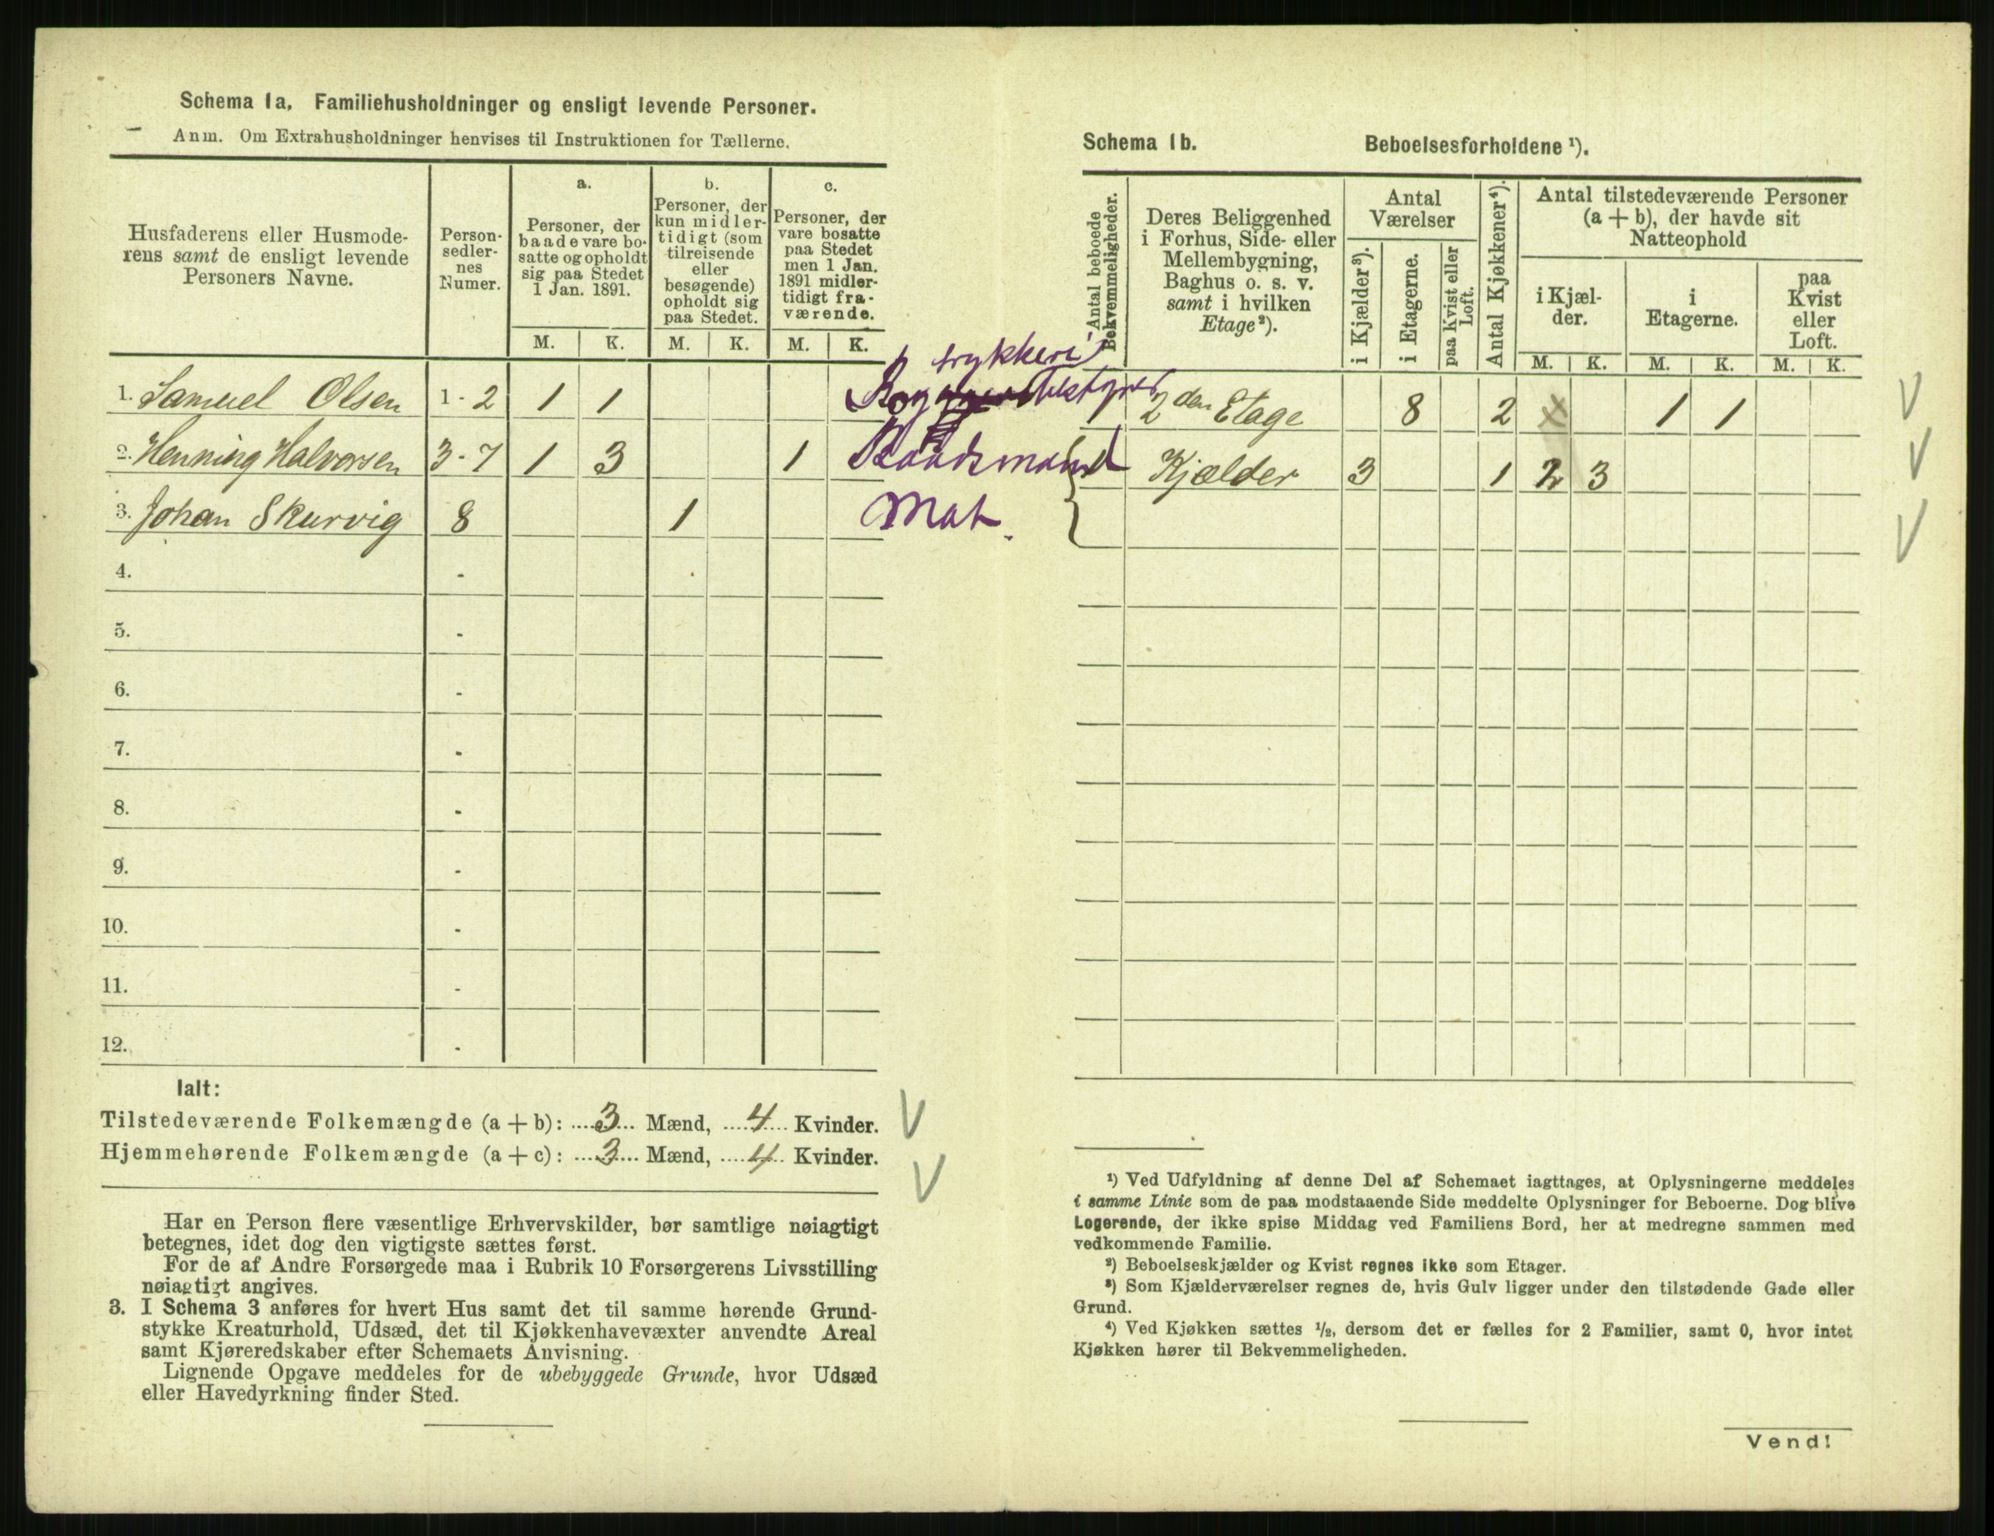 Schema 1a. Familiehusholdninger og ensligt levende Personer.
Anm. Om Extrahusholdninger henvises til Instruktionen for Tællerne.
Husfaderens eller Husmode-
rens samt de ensligt levende
Personers Navne.
Person-
sedler-
nes
Numer.
a.
Personer, der
baade vare bo-
satte og opholdt
sig paa Stedet
1 Jan. 1891.
b.
Personer, der
kun midler-
tidigt (som
tilreisende
eller
besøgende)
opholdt sig
paa Stedet.
c.
Personer, der
vare bosatte
paa Stedet
men 1 Jan.
1891 midler-
tidigt fra-
værende.
M. K. M. K. M. K.
trykkeri
1. Samuel Olsen 1 - 2 1 1 Bog bestyrer
2. Henning Halvorsen 3 - 7 1 3 1 Baadsmand
3. Johan Skurvig 8 1 Mat.
4. -
5. -
6. -
7. -
8. -
9. -
10. -
11. -
12. -
Ialt:
Tilstedeværende Folkemængde (a + b): 3 Mænd, 4 Kvinder.
Hjemmehørende Folkemængde (a + c): 3 Mænd, 4 Kvinder.
Har en Person flere væsentlige Erhvervskilder, bør samtlige nøiagtigt
betegnes, idet dog den vigtigste sættes først.
For de af Andre Forsørgede maa i Rubrik 10 Forsørgerens Livsstilling
nøiagtigt angives.
3. I Schema 3 anføres for hvert Hus samt det til samme hørende Grund-
stykke Kreaturhold, Udsæd, det til Kjøkkenhavevæxter anvendte Areal
samt Kjøreredskaber efter Schemaets Anvisning.
Lignende Opgave meddeles for de ubebyggede Grunde, hvor Udsæd
eller Havedyrkning finder Sted.
Schema 1b. Beboelsesforholdene ¹).
Antal beboede
Bekvemmeligheder.
Deres Beliggenhed
i Forhus, Side- eller
Mellembygning,
Baghus o. s. v.
samt i hvilken
Etage²).
Antal
Værelser
i Kjælder³).
i Etagerne.
paa Kvist eller
Loft.
Antal Kjøkkener⁴).
Antal tilstedeværende Personer
(a + b), der havde sit
Natteophold
i Kjæl-
der.
i
Etagerne.
paa
Kvist
eller
Loft.
M. K. M. K. M. K.
1 2den Etage 8 2 x 1 1
1 Kjælder 3 1 2 3
¹) Ved Udfyldning af denne Del af Schemaet iagttages, at Oplysningerne meddeles
i samme Linie som de paa modstaaende Side meddelte Oplysninger for Beboerne. Dog blive
Logerende, der ikke spise Middag ved Familiens Bord, her at medregne sammen med
vedkommende Familie.
²) Beboelseskjælder og Kvist regnes ikke som Etager.
³) Som Kjælderværelser regnes de, hvis Gulv ligger under den tilstødende Gade eller
Grund.
⁴) Ved Kjøkken sættes ½, dersom det er fælles for 2 Familier, samt 0, hvor intet
Kjøkken hører til Bekvemmeligheden.
Vend!